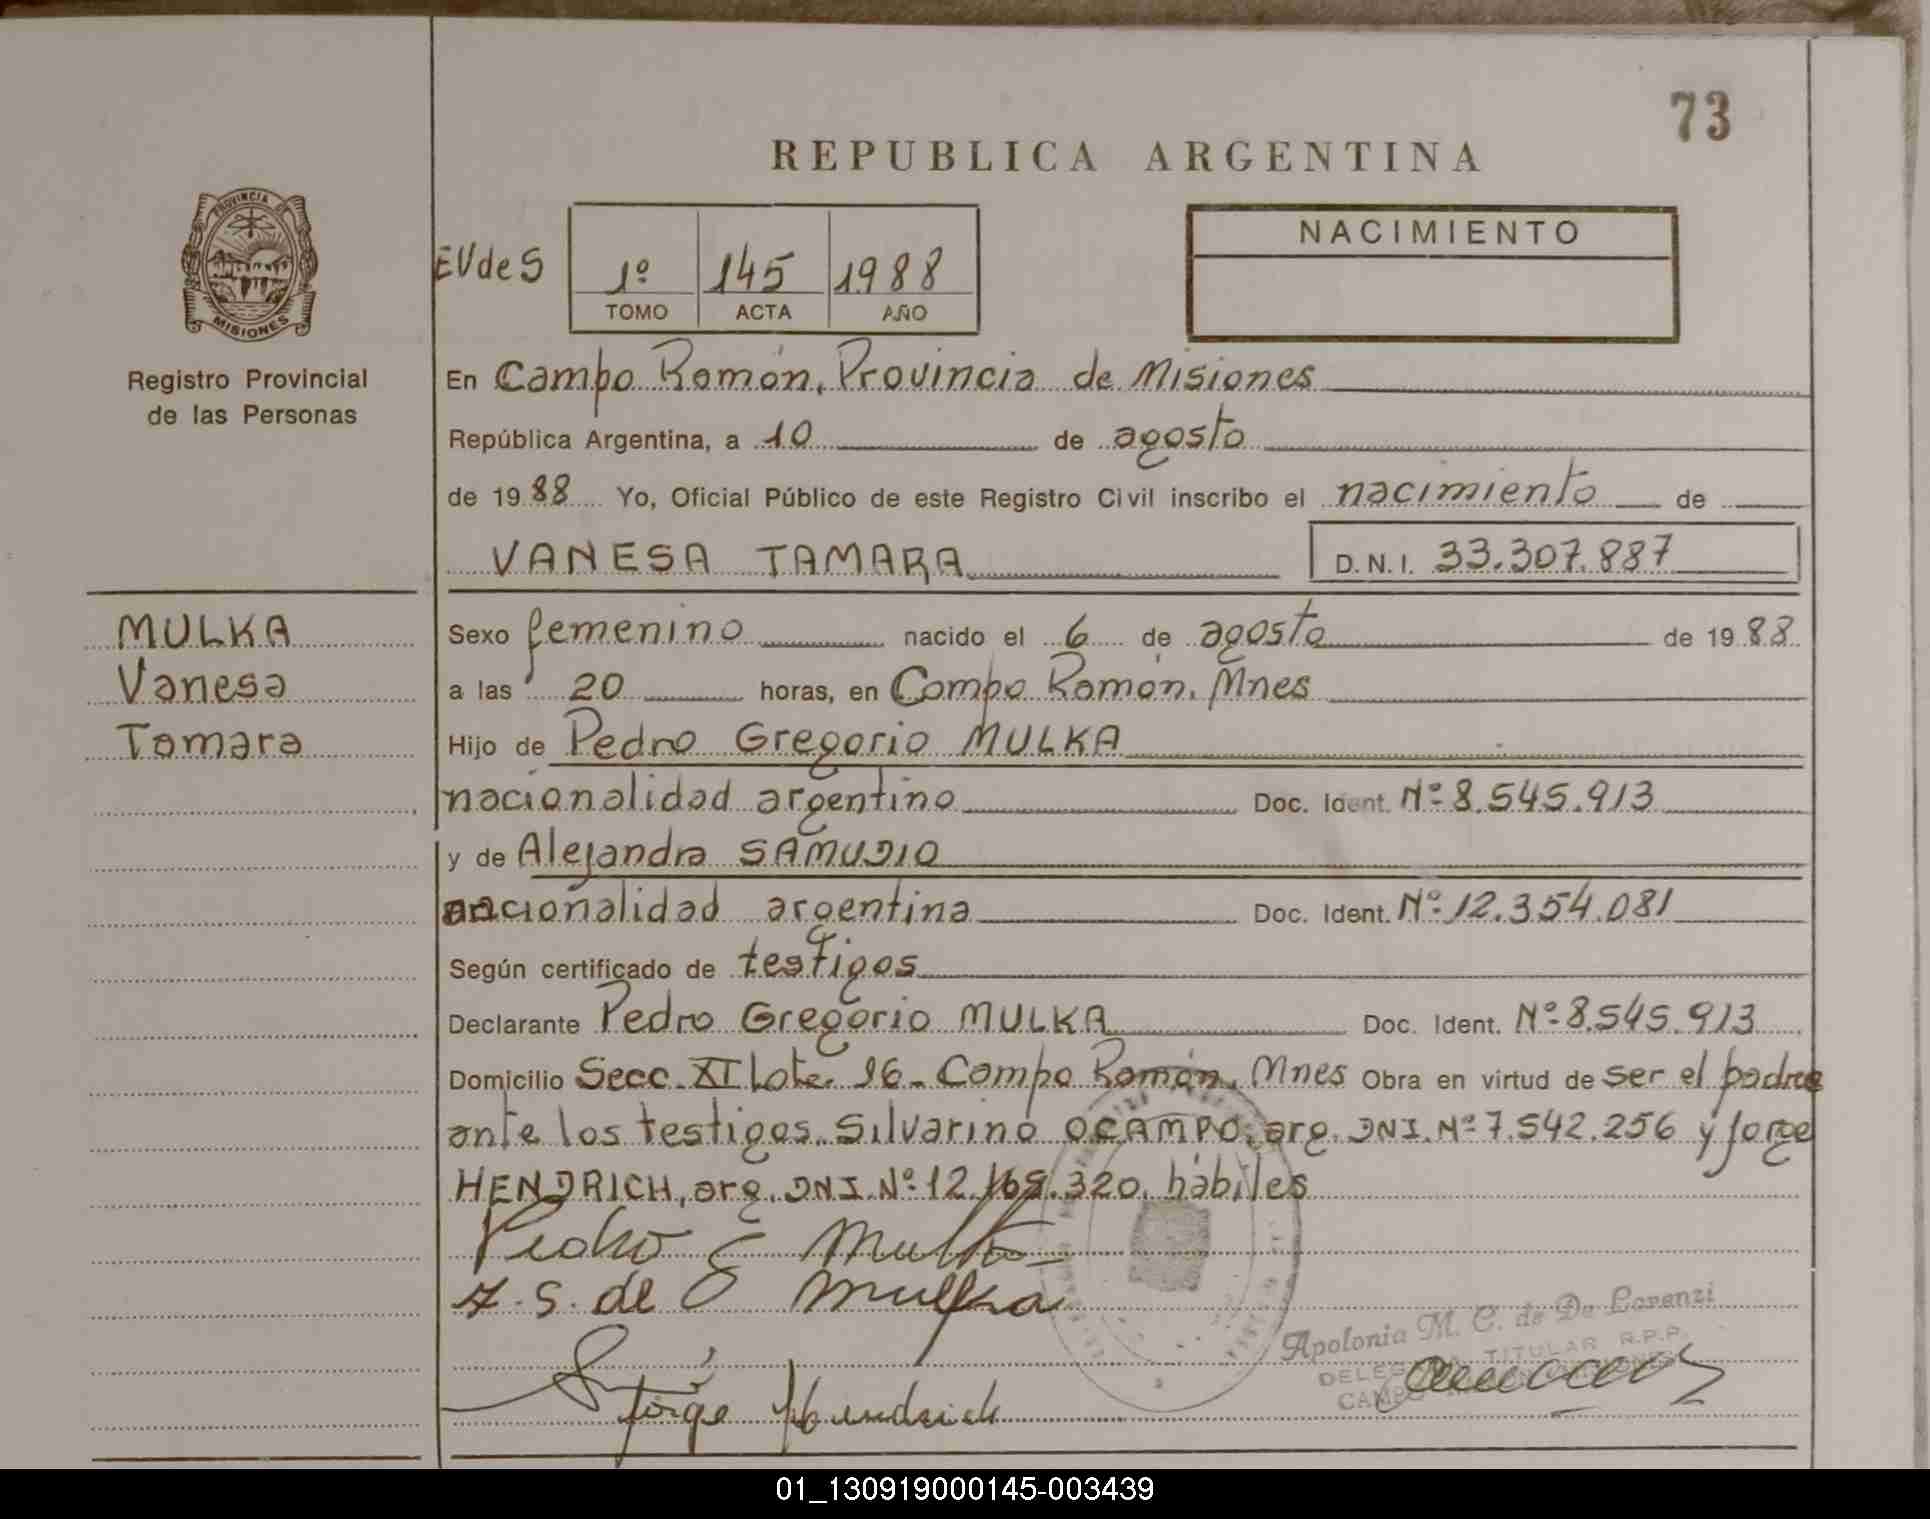 73
REPUBLICA ARGENTINA
PROVINCIA DE
MISIONES
Registro Provincial
de las Personas
EVdeS
1º 145 1988
TOMO ACTA AÑO
NACIMIENTO
En Campo Ramón, Provincia de Misiones
República Argentina, a 10 de agosto
de 1988 Yo, Oficial Público de este Registro Civil inscribo el nacimiento de
VANESA TAMARA D.N.I. 33.307.887
MULKA
Vanesa
Tamara
Sexo femenino nacido el 6 de agosto de 1988
a las 20 horas, en Campo Ramón, Mnes
Hijo de Pedro Gregorio MULKA
nacionalidad argentino Doc. Ident. Nº 8.545.913
y de Alejandra SAMUDIO
nacionalidad argentina Doc. Ident. Nº 12.354.081
Según certificado de testigos
Declarante Pedro Gregorio MULKA Doc. Ident. Nº 8.545.913
Domicilio Secc. XI Lote 16 - Campo Ramón, Mnes Obra en virtud de ser el padre
ante los testigos Silvarino OCAMPO, arg. DNI. Nº 7.542.256 y Jorge
HENDRICH, arg. DNI. Nº 12.165.320, hábiles
Pedro G Mulka
A. S. de Mulka
Apolonia M. C. de De Lorenzi
DELEGADA TITULAR R.P.P.
CAMPO
Jorge Hendrich
01_130919000145-003439